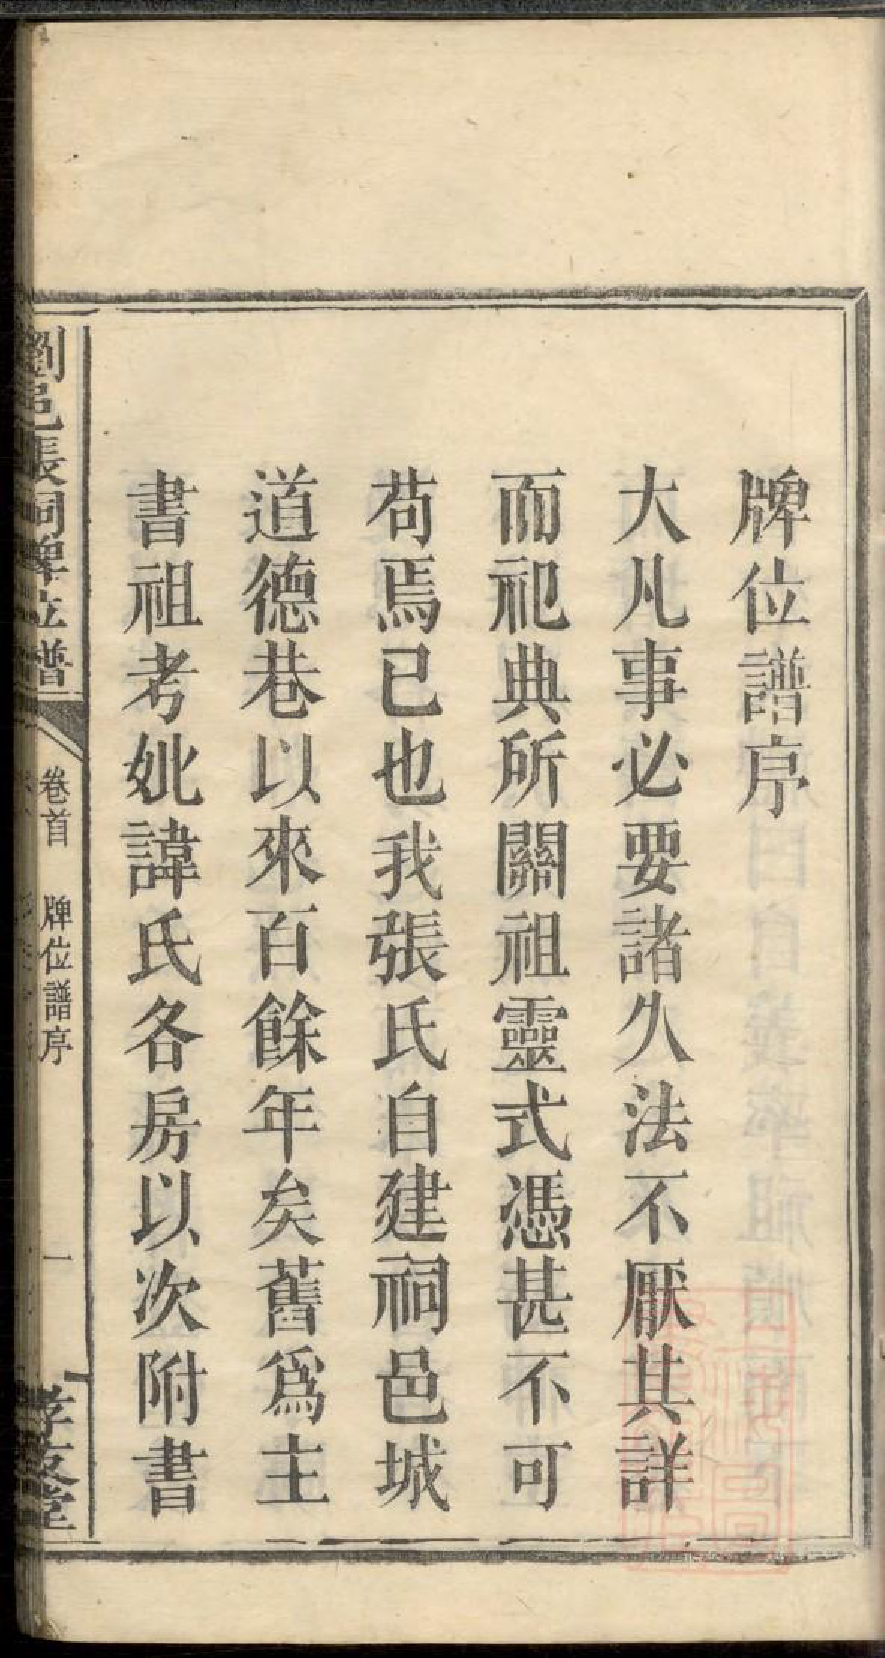 牌位譜序
大凡事必要諸久法不厭其詳
而祀典所關祖靈式憑甚不可
苟焉已也我張氏自建祠邑城
道德巷以來百餘年矣舊爲主
書祖考妣諱氏各房以次附書
劉邑張祠牌位譜
卷首 牌位譜序
一
孝友堂